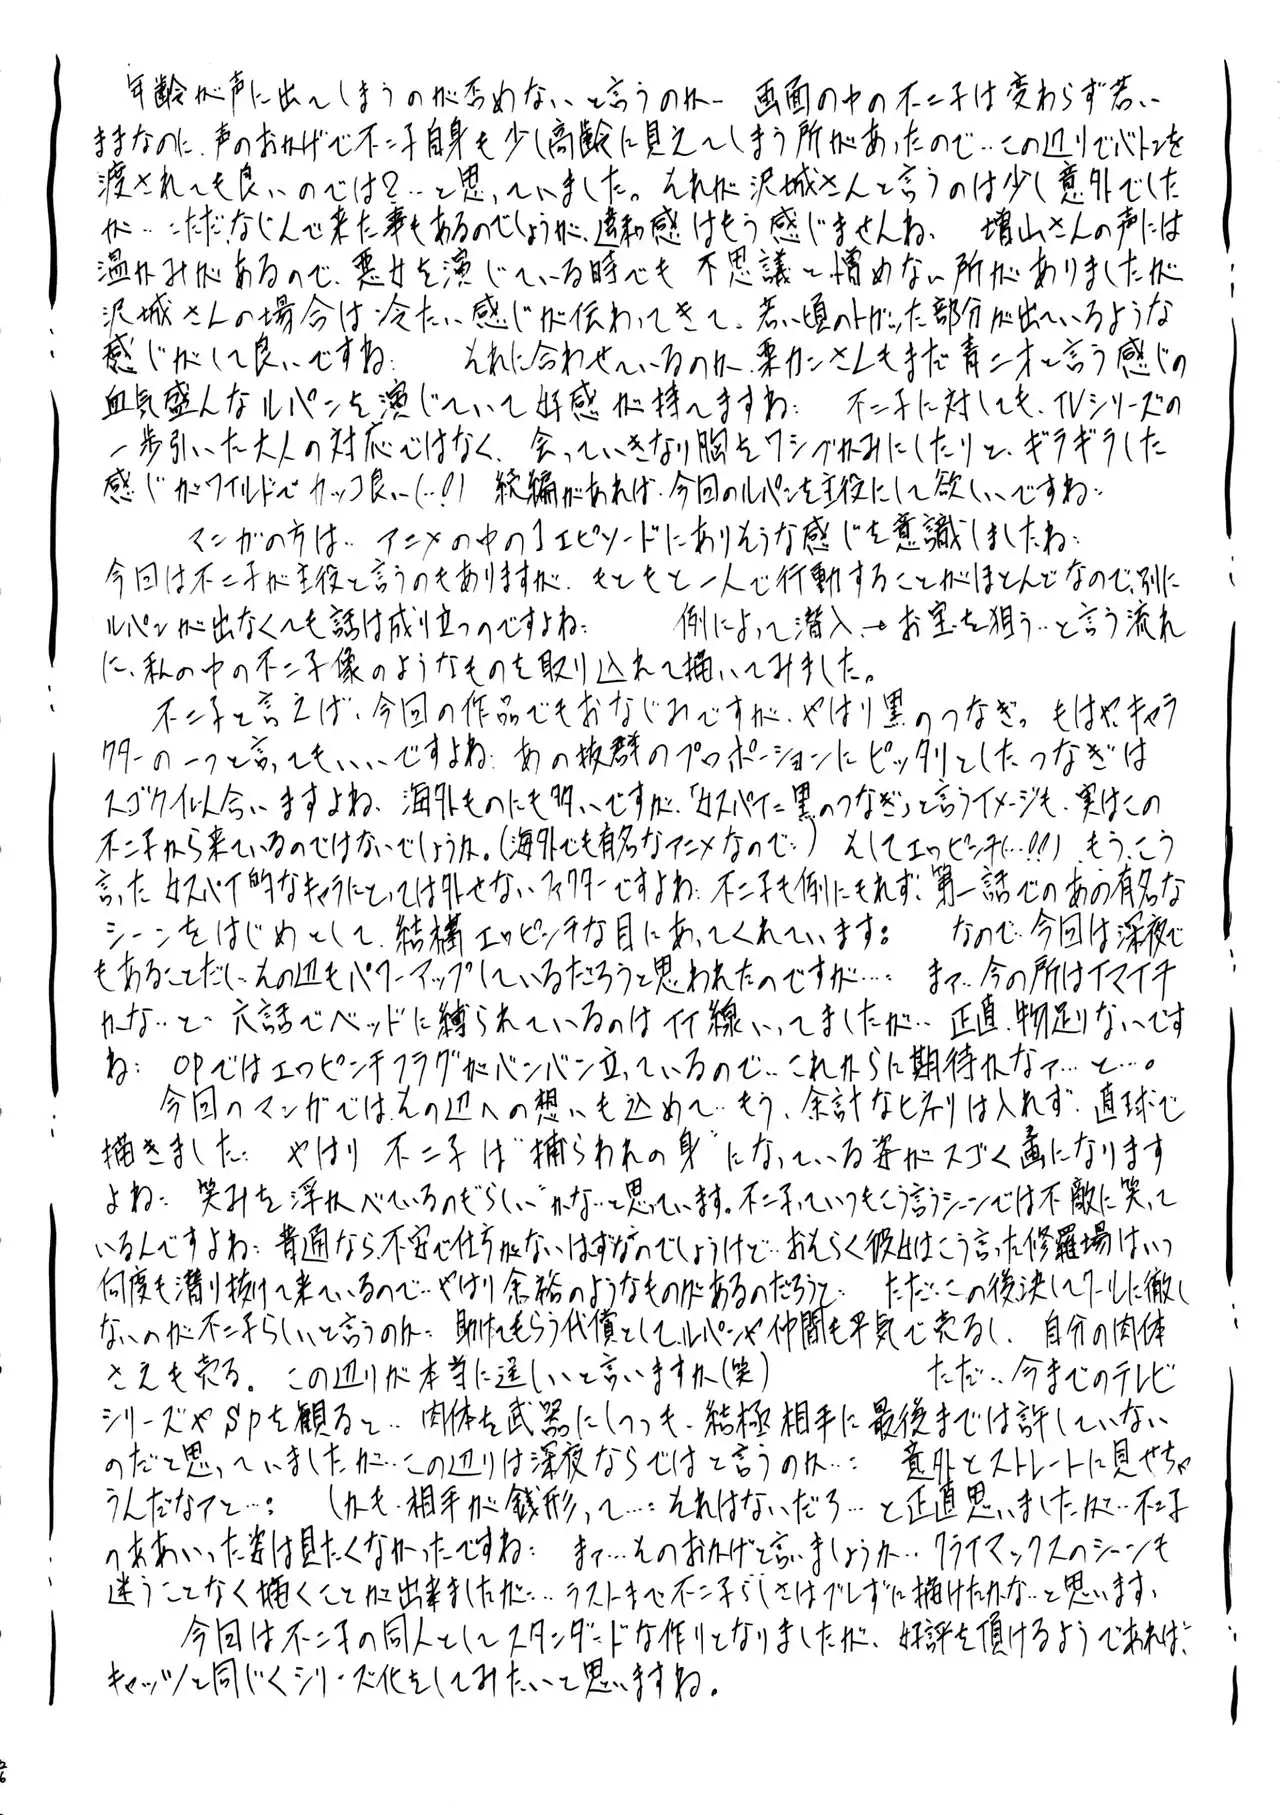 年齢が声に出てしまうのが否めないと言うのか… 画面の中の不二子は変わらず若い
ままなのに、声のおかげで不二子自身も少し高齢に見えてしまう所があったので…この辺りでバトンを
渡されても良いのでは?…と思っていました。それが沢城さんと言うのは少し意外でした
が…ただ、なじんで来た事もあるのでしょうが、違和感はもう感じませんね、 増山さんの声には
温かみがあるので、悪女を演じている時でも不思議と憎めない所がありましたが
沢城さんの場合は冷たい感じが伝わってきて、若い頃のトガった部分が出ているような
感じがして良いですね: それに合わせているのか、栗カンさんもまだ青二才と言う感じの
血気盛んなルパンを演じていて好感が持てますね: 不二子に対しても、TVシリーズの
一歩引いた大人の対応ではなく、会っていきなり胸をワシヅかみにしたりと、ギラギラした
感じがワイルドでカッコ良い(…!) 続編があれば、今回のルパンを主役にして欲しいですね:
マンガの方は… アニメの中の1エピソードにありそうな感じを意識しましたね:
今回は不二子が主役と言うのもありますが、もともと一人で行動することがほとんどなので、別に
ルパンが出なくても話は成り立つのですよね: 例によって潜入→お宝を狙う…と言う流れ
に、私の中の不二子像のようなものを取り込れて描いてみました。
不二子と言えば、今回の作品でもおなじみですが、やはり黒のつなぎっ もはや、キャラ
クターの一つと言ってもいいですよね: あの抜群のプロポーションにピッタリとしたつなぎは
スゴク似合いますよね、海外ものにも多いですが、「女スパイに黒のつなぎ」と言うイメージも、実はこの
不二子から来ているのではないでしょうか。(海外でも有名なアニメなので:) そしてエロピンチ(…!!) もう、こう
言った女スパイ的なキャラにとっては外せないファクターですよね: 不二子も例にもれず、第一話でのあの有名な
シーンをはじめとして、結構エロピンチな目にあってくれています: なので…今回は深夜で
もあることだし…その辺もパワーアップしているだろうと思われたのですが…: まァ…今の所はイマイチ
かな…と… 六話でベッドに縛られているのはイイ線いってましたが… 正直、物足りないです
ね: OPではエロピンチフラグがバンバン立っているので…これからに期待かなァ…と…。
今回のマンガでは、その辺への想いも込めて…もう、余計なヒネリは入れず、直球で
描きました: やはり不二子は“捕らわれの身”になっている姿がスゴく画になります
よね: 笑みを浮かべているのも“らしい”かな…と思っています。不二子っていつもこう言うシーンでは不敵に笑って
いるんですよね: 普通なら、不安で仕方がないはずなのでしょうけど…おそらく彼女はこう言った修羅場はいつ
何度も潜り抜けて来ているので…やはり余裕のようなものがあるのだろうと… ただ…この後決してクールに徹し
ないのが不二子らしいと言うのか: 助けてもらう代償として、ルパンや仲間も平気で売るし、自分の肉体
さえも売る。この辺りが本当に逞しいと言いますか(笑) ただ…今までのテレビ
シリーズやSPを観ると… 肉体を武器にしつつも、結極相手に最後までは許していない
のだと思っていましたが…この辺りは深夜ならではと言うのか…: 意外とストレートに見せちゃ
うんだなァと…: (しかも、相手が銭形って…: それはないだろ…と正直思いましたが…不二子
のああいった姿は見たくなかったですね: まァ…そのおかげと言いましょうか…クライマックスのシーンも
迷うことなく描くことが出来ましたが…ラストまで不二子らしさはブレずに描けたかな…と思います、
今回は不二子の同人としてスタンダードな作りとなりましたが、好評を頂けるようであれば、
キャッツと同じくシリーズ化をしてみたいと思いますね。